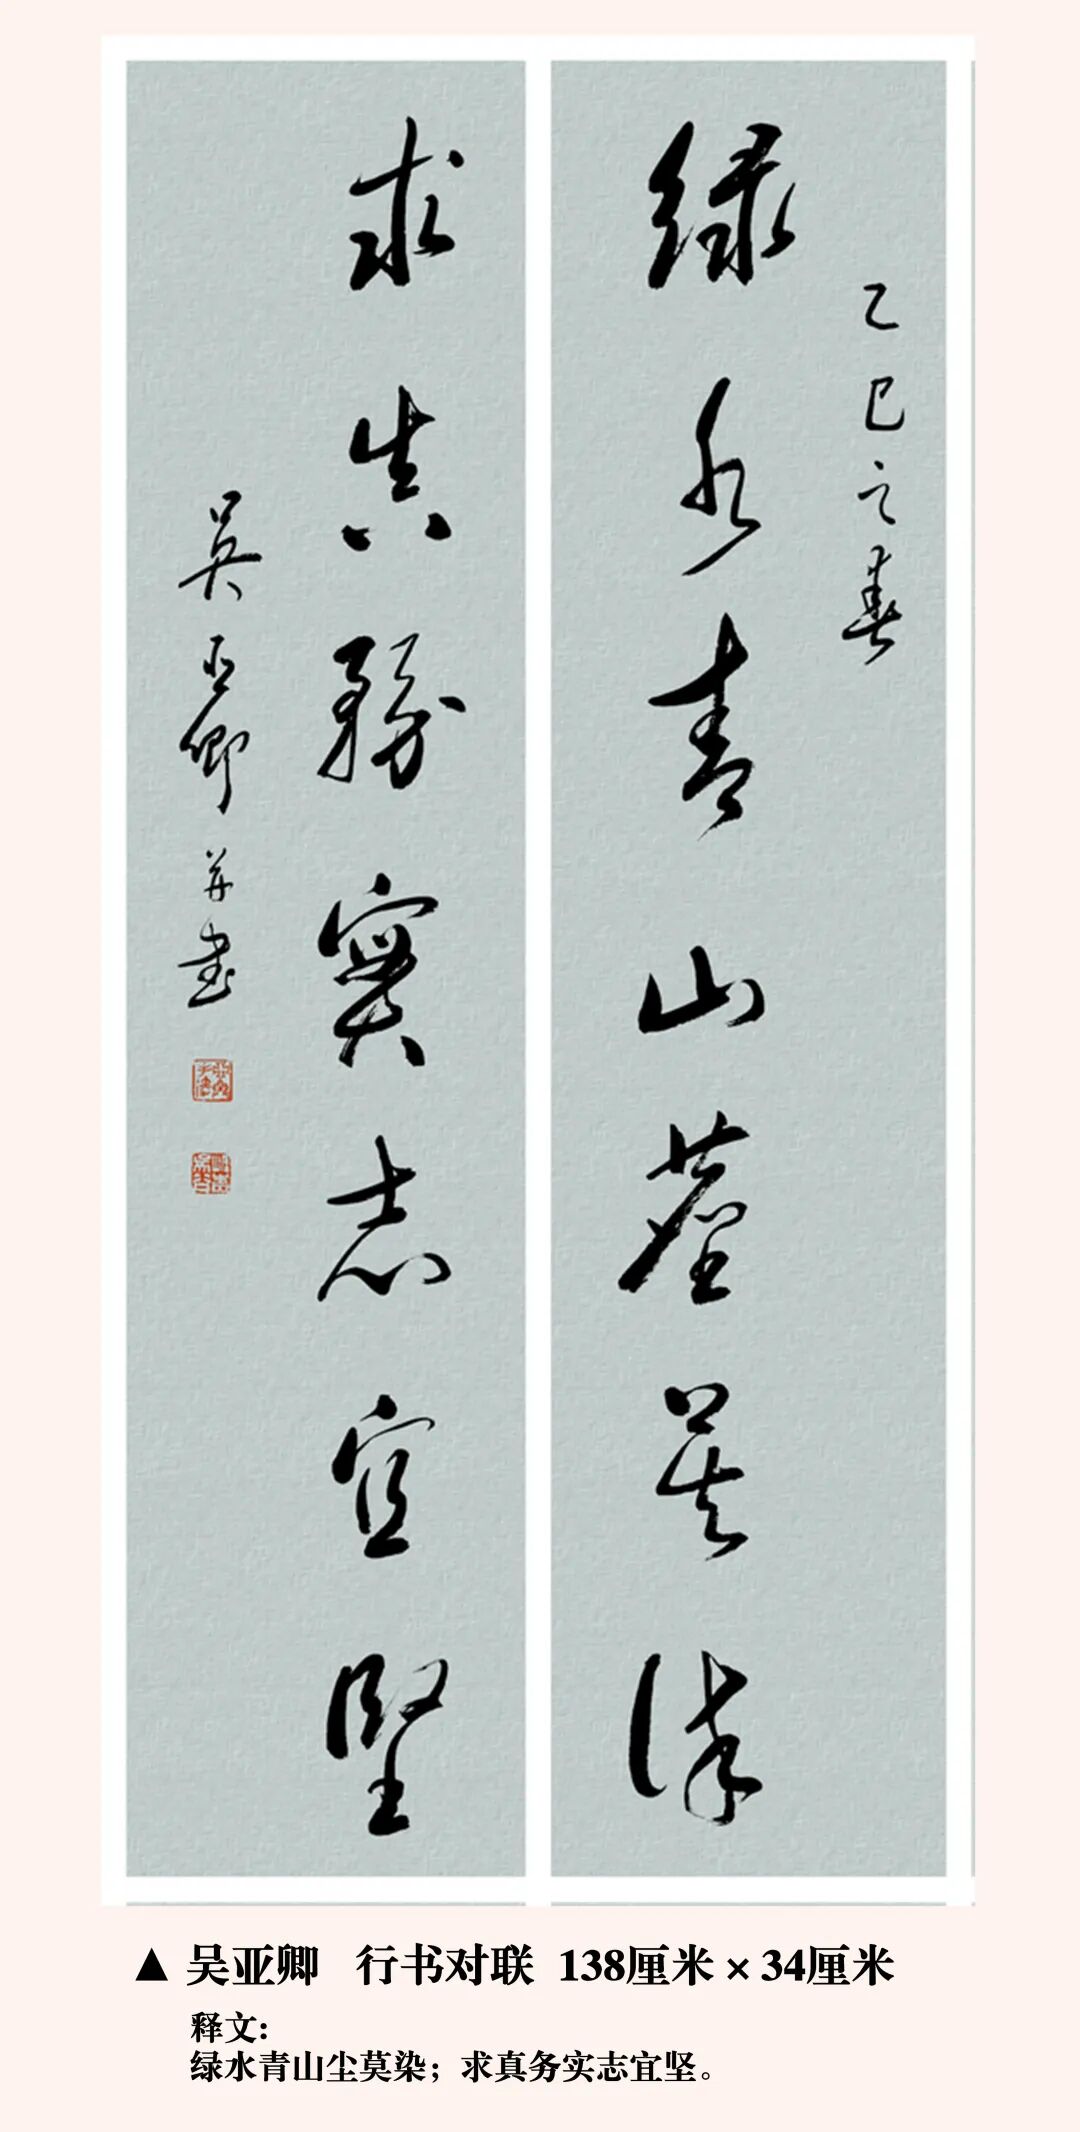 乙巳之春
绿水青山塵莫染
求真務實志宜堅
吴亚卿并書
▲ 吴亚卿 行书对联 138厘米 × 34厘米
释文：
绿水青山尘莫染；求真务实志宜坚。